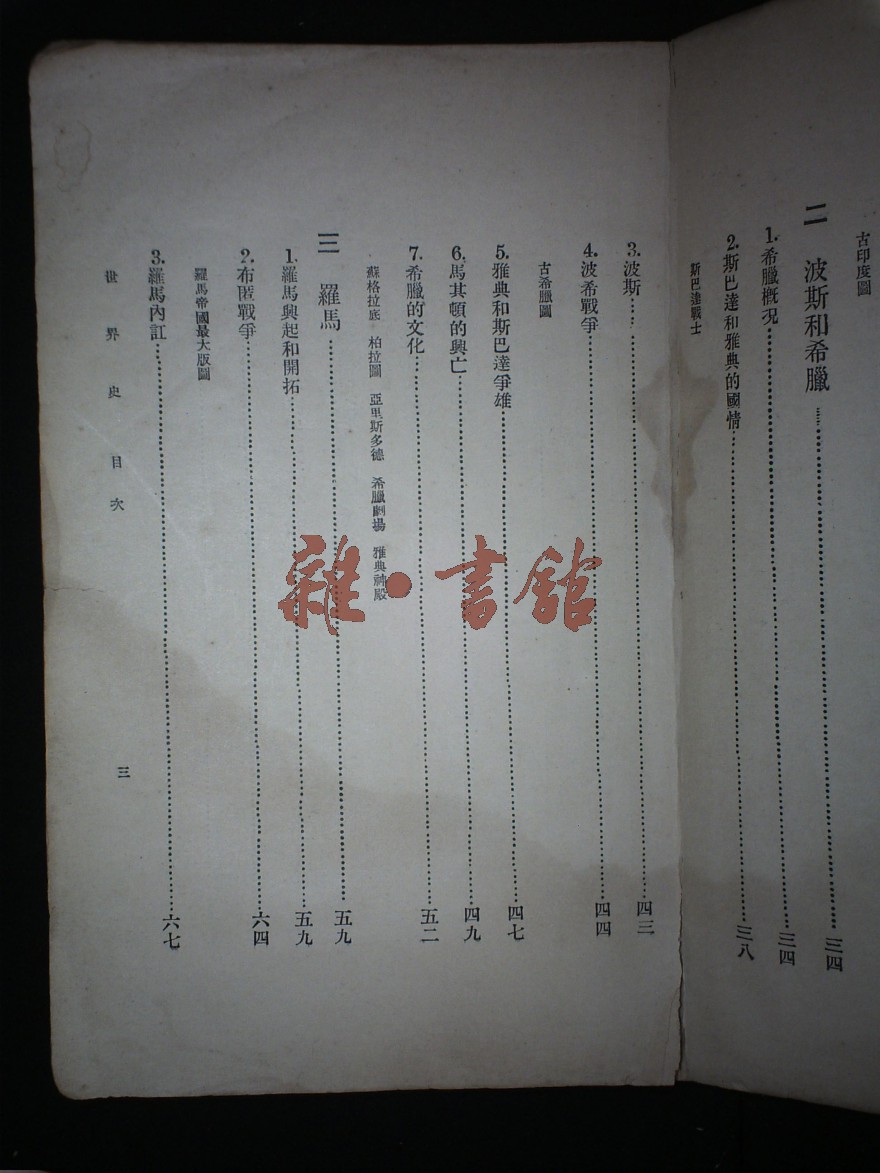 古印度圖
二 波斯和希臘 三四
1.希臘概況 三四
2.斯巴達和雅典的國情 三八
斯巴達戰士
3.波斯 四三
4.波希戰爭 四四
古希臘圖
5.雅典和斯巴達爭雄 四七
6.馬其頓的興亡 四九
7.希臘的文化 五二
蘇格拉底 柏拉圖 亞里斯多德 希臘劇場 雅典神殿
三 羅馬 五九
1.羅馬興起和開拓 五九
2.布匿戰爭 六四
羅馬帝國最大版圖
3.羅馬內訌 六七
世界史目次 三
雜·書館